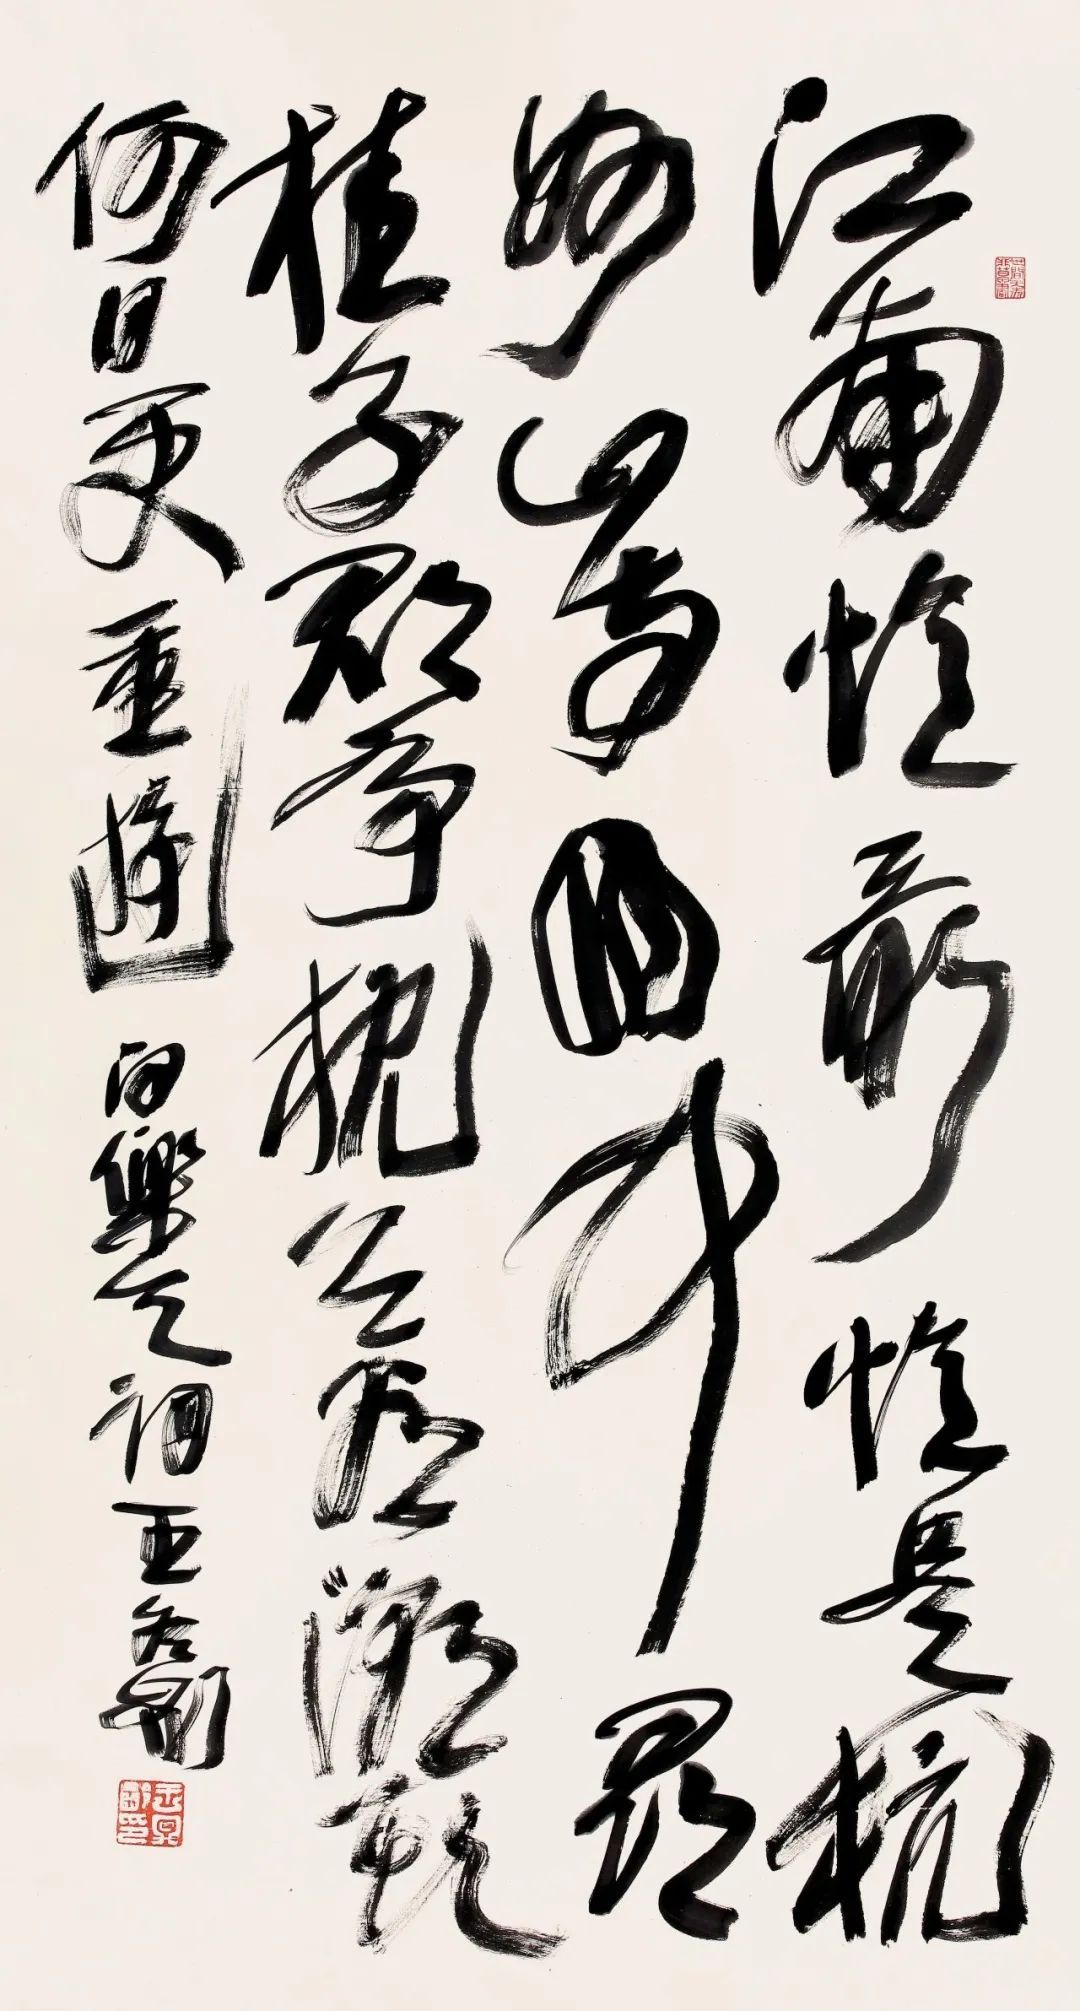 江南憶最憶是杭
州山寺月中尋
桂子郡亭枕上看潮頭
何日更重遊 白樂天詞 王冬齡